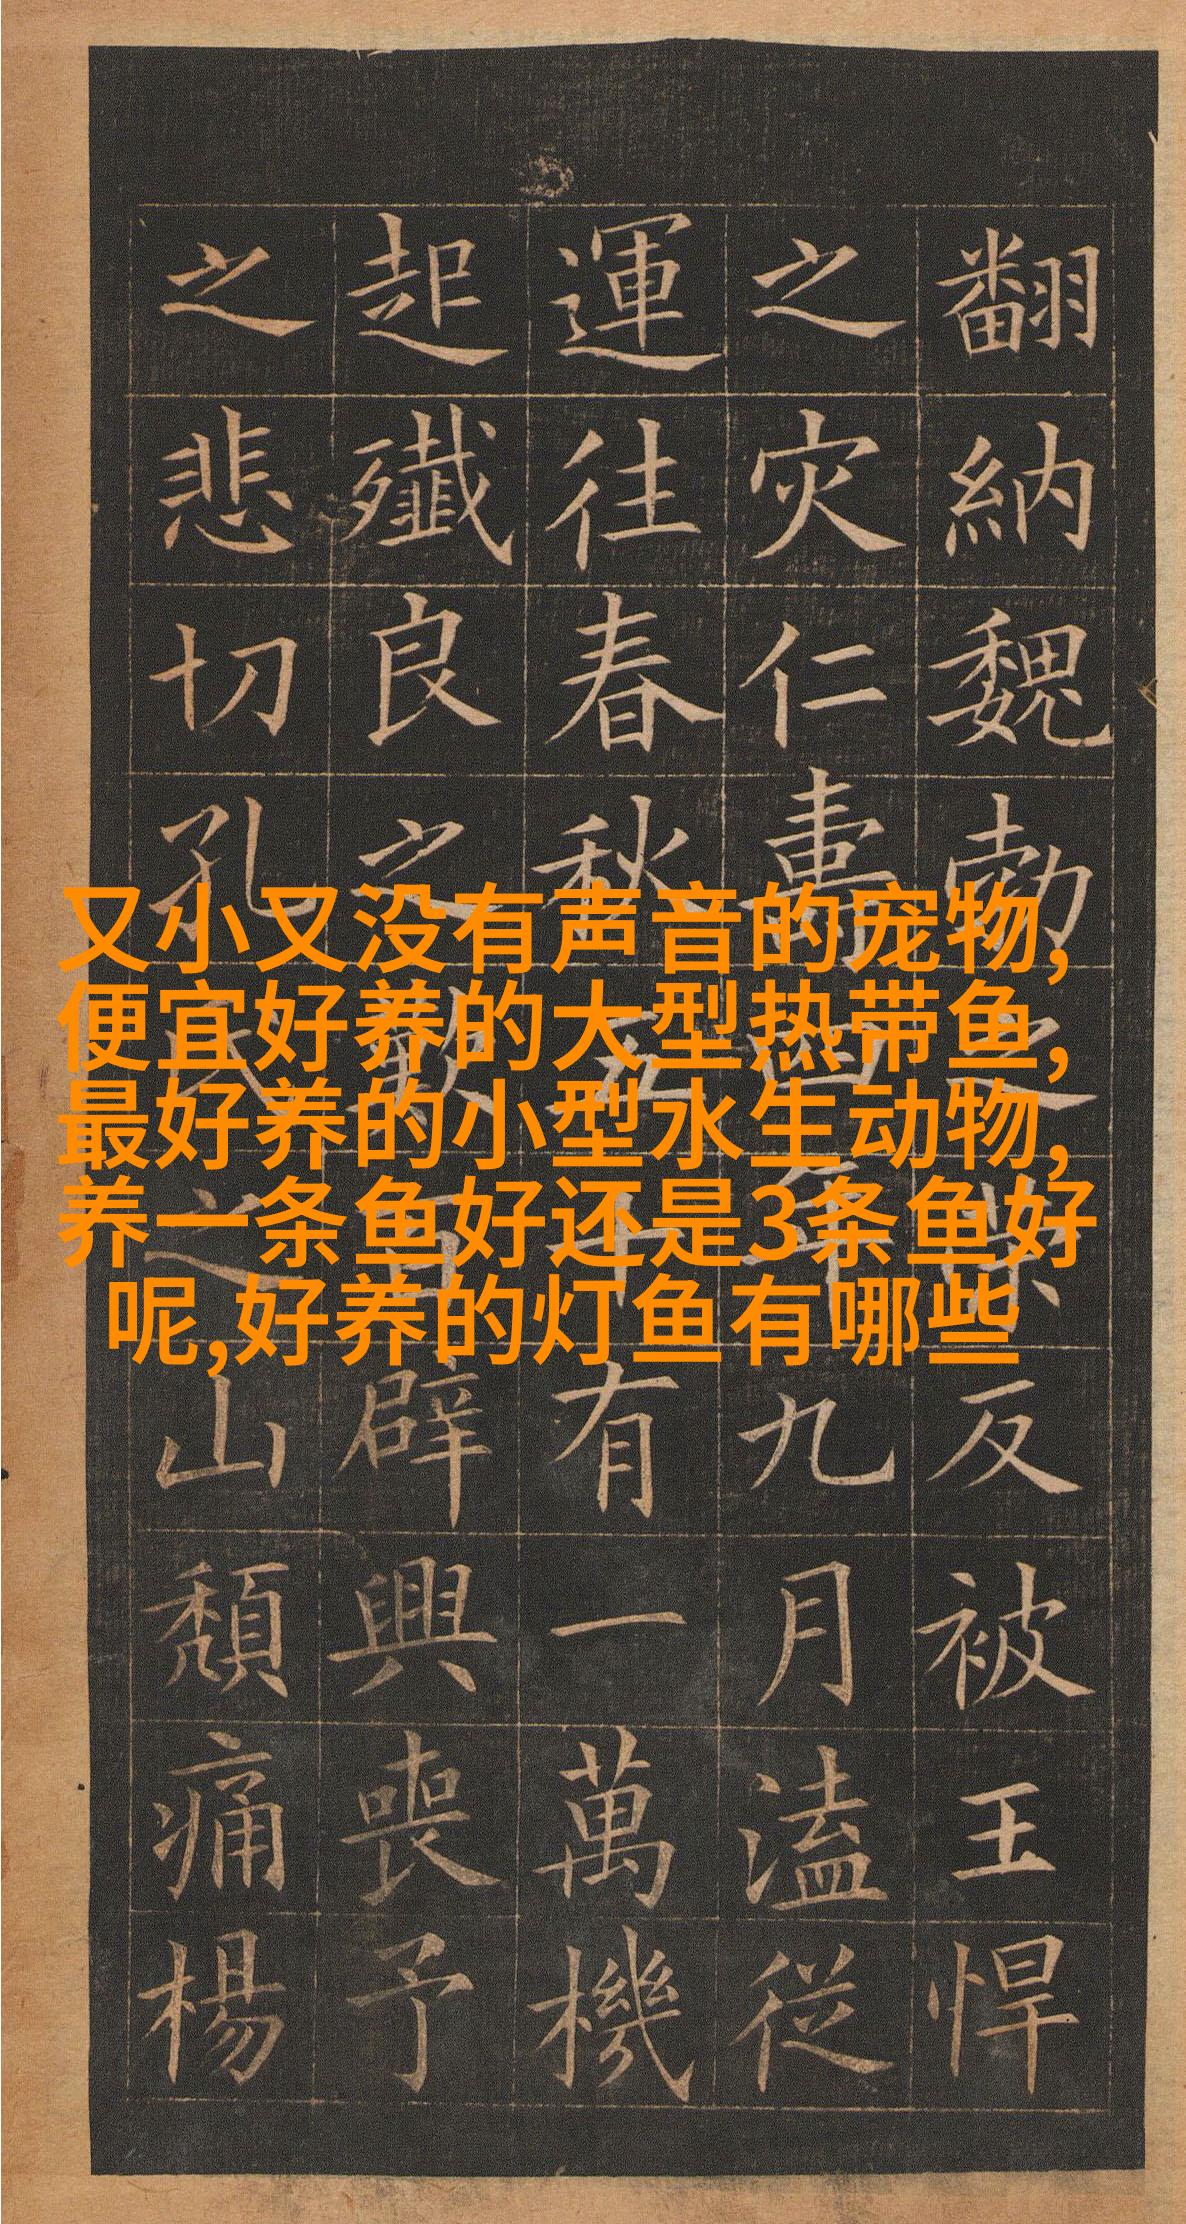 翻納魏勃之反被王悍
之灾仁壽四年九月溘從
運往春秋五十有一萬機
起殲良之歎百辟興喪予
之悲切孔氏之山頹痛楊
又小又没有声音的宠物,
便宜好养的大型热带鱼,
最好养的小型水生动物,
养一条鱼好还是3条鱼好
呢,好养的灯鱼有哪些